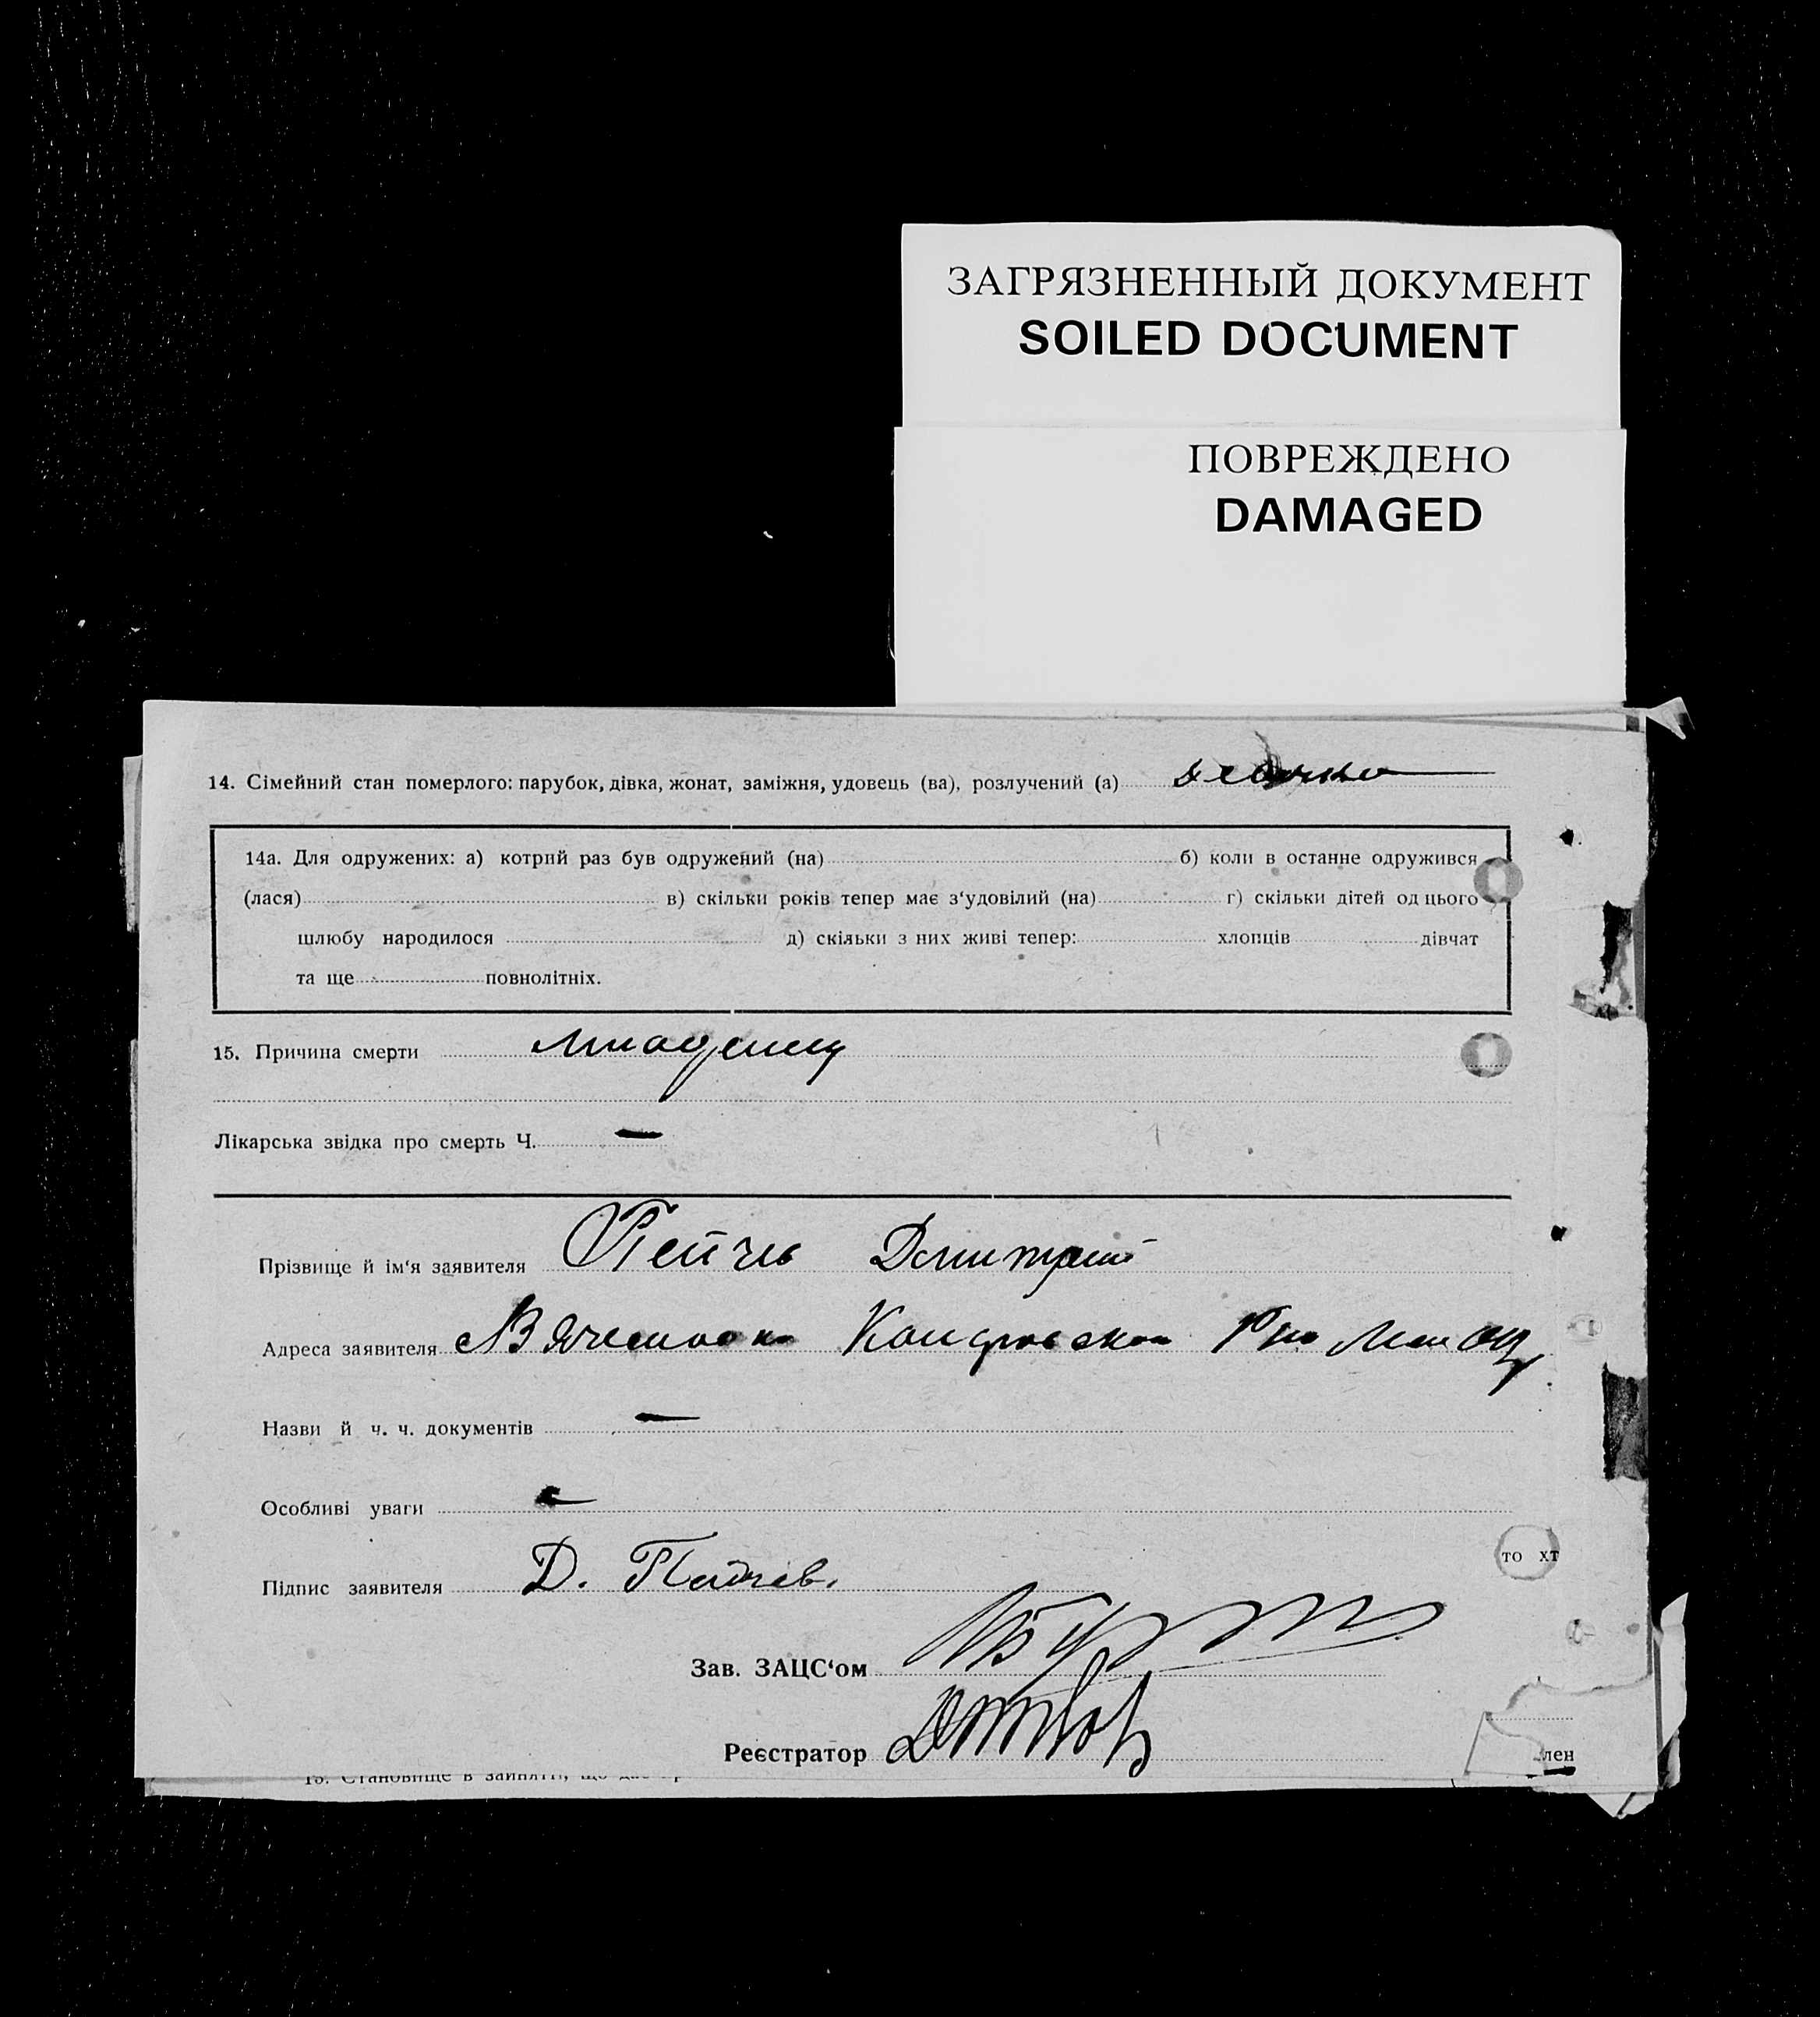 ЗАГРЯЗНЕННЫЙ ДОКУМЕНТ
SOILED DOCUMENT
ПОВРЕЖДЕНО
DAMAGED
14. Сімейний стан померлого: парубок, дівка, жонат, заміжня, удовець (ва), розлучений (а)
14а. Для одружених: а) котрий раз був одружений (на) б) коли в останне одружився
(лася) в) скільки років тепер має з‘удовілий (на) г) скільки дітей од цього
шлюбу народилося д) скільки з них живі тепер: хлопців дівчат
та ще повнолітніх.
15. Причина смерти младенец
Лікарська звідка про смерть Ч. —
Прізвище й ім‘я заявителя Пейчев Дмитрий
Адреса заявителя
Назви й ч. ч. документів —
Особливі уваги —
то хт
Підпис заявителя Д. Пейчев.
Зав. ЗАЦС‘ом
Реєстратор
лен